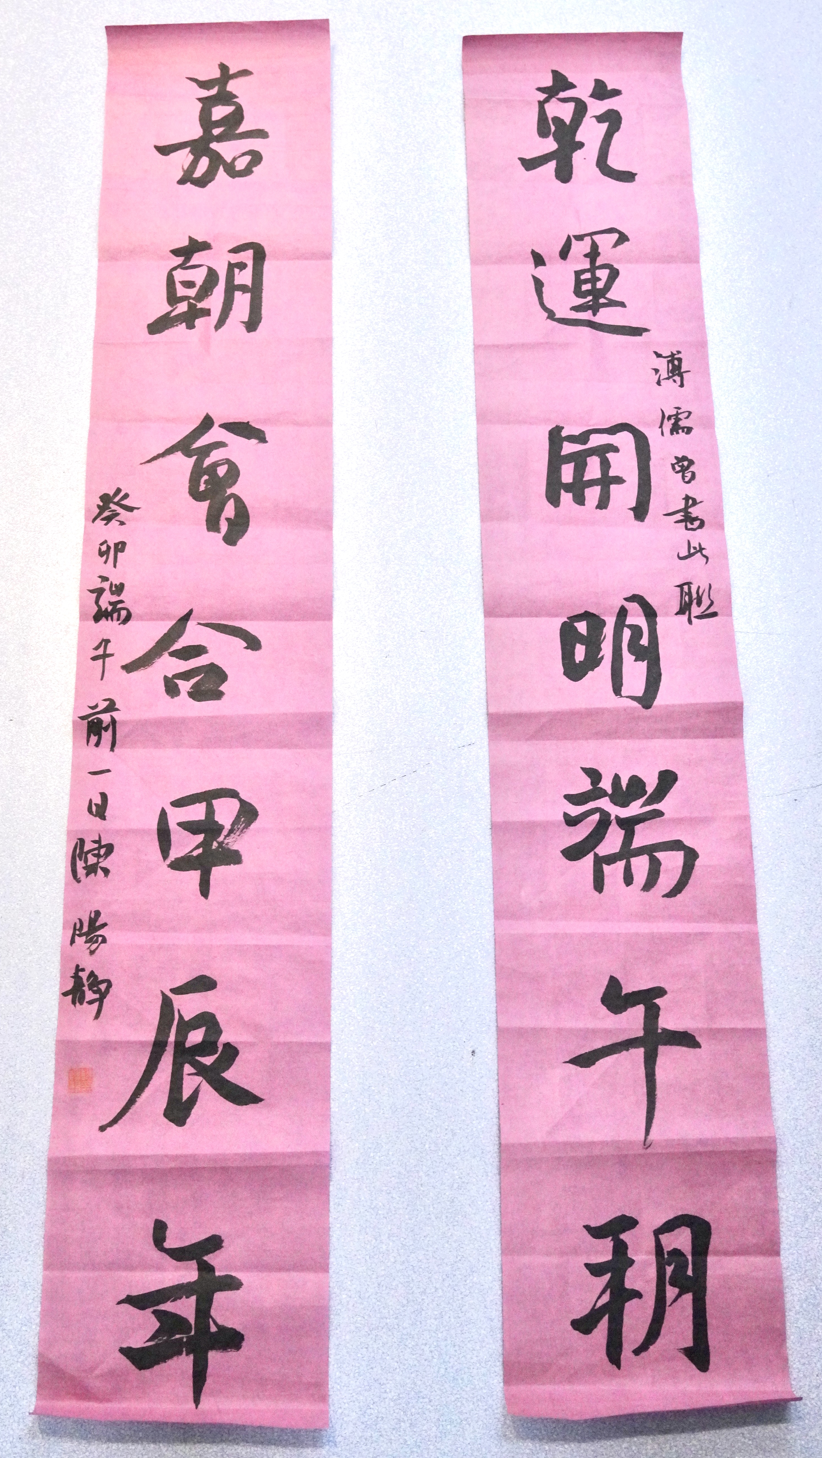 乾運開明端午朔
溥儒曾書此聯
嘉朝會合甲辰年
癸卯端午前一日陳陽靜